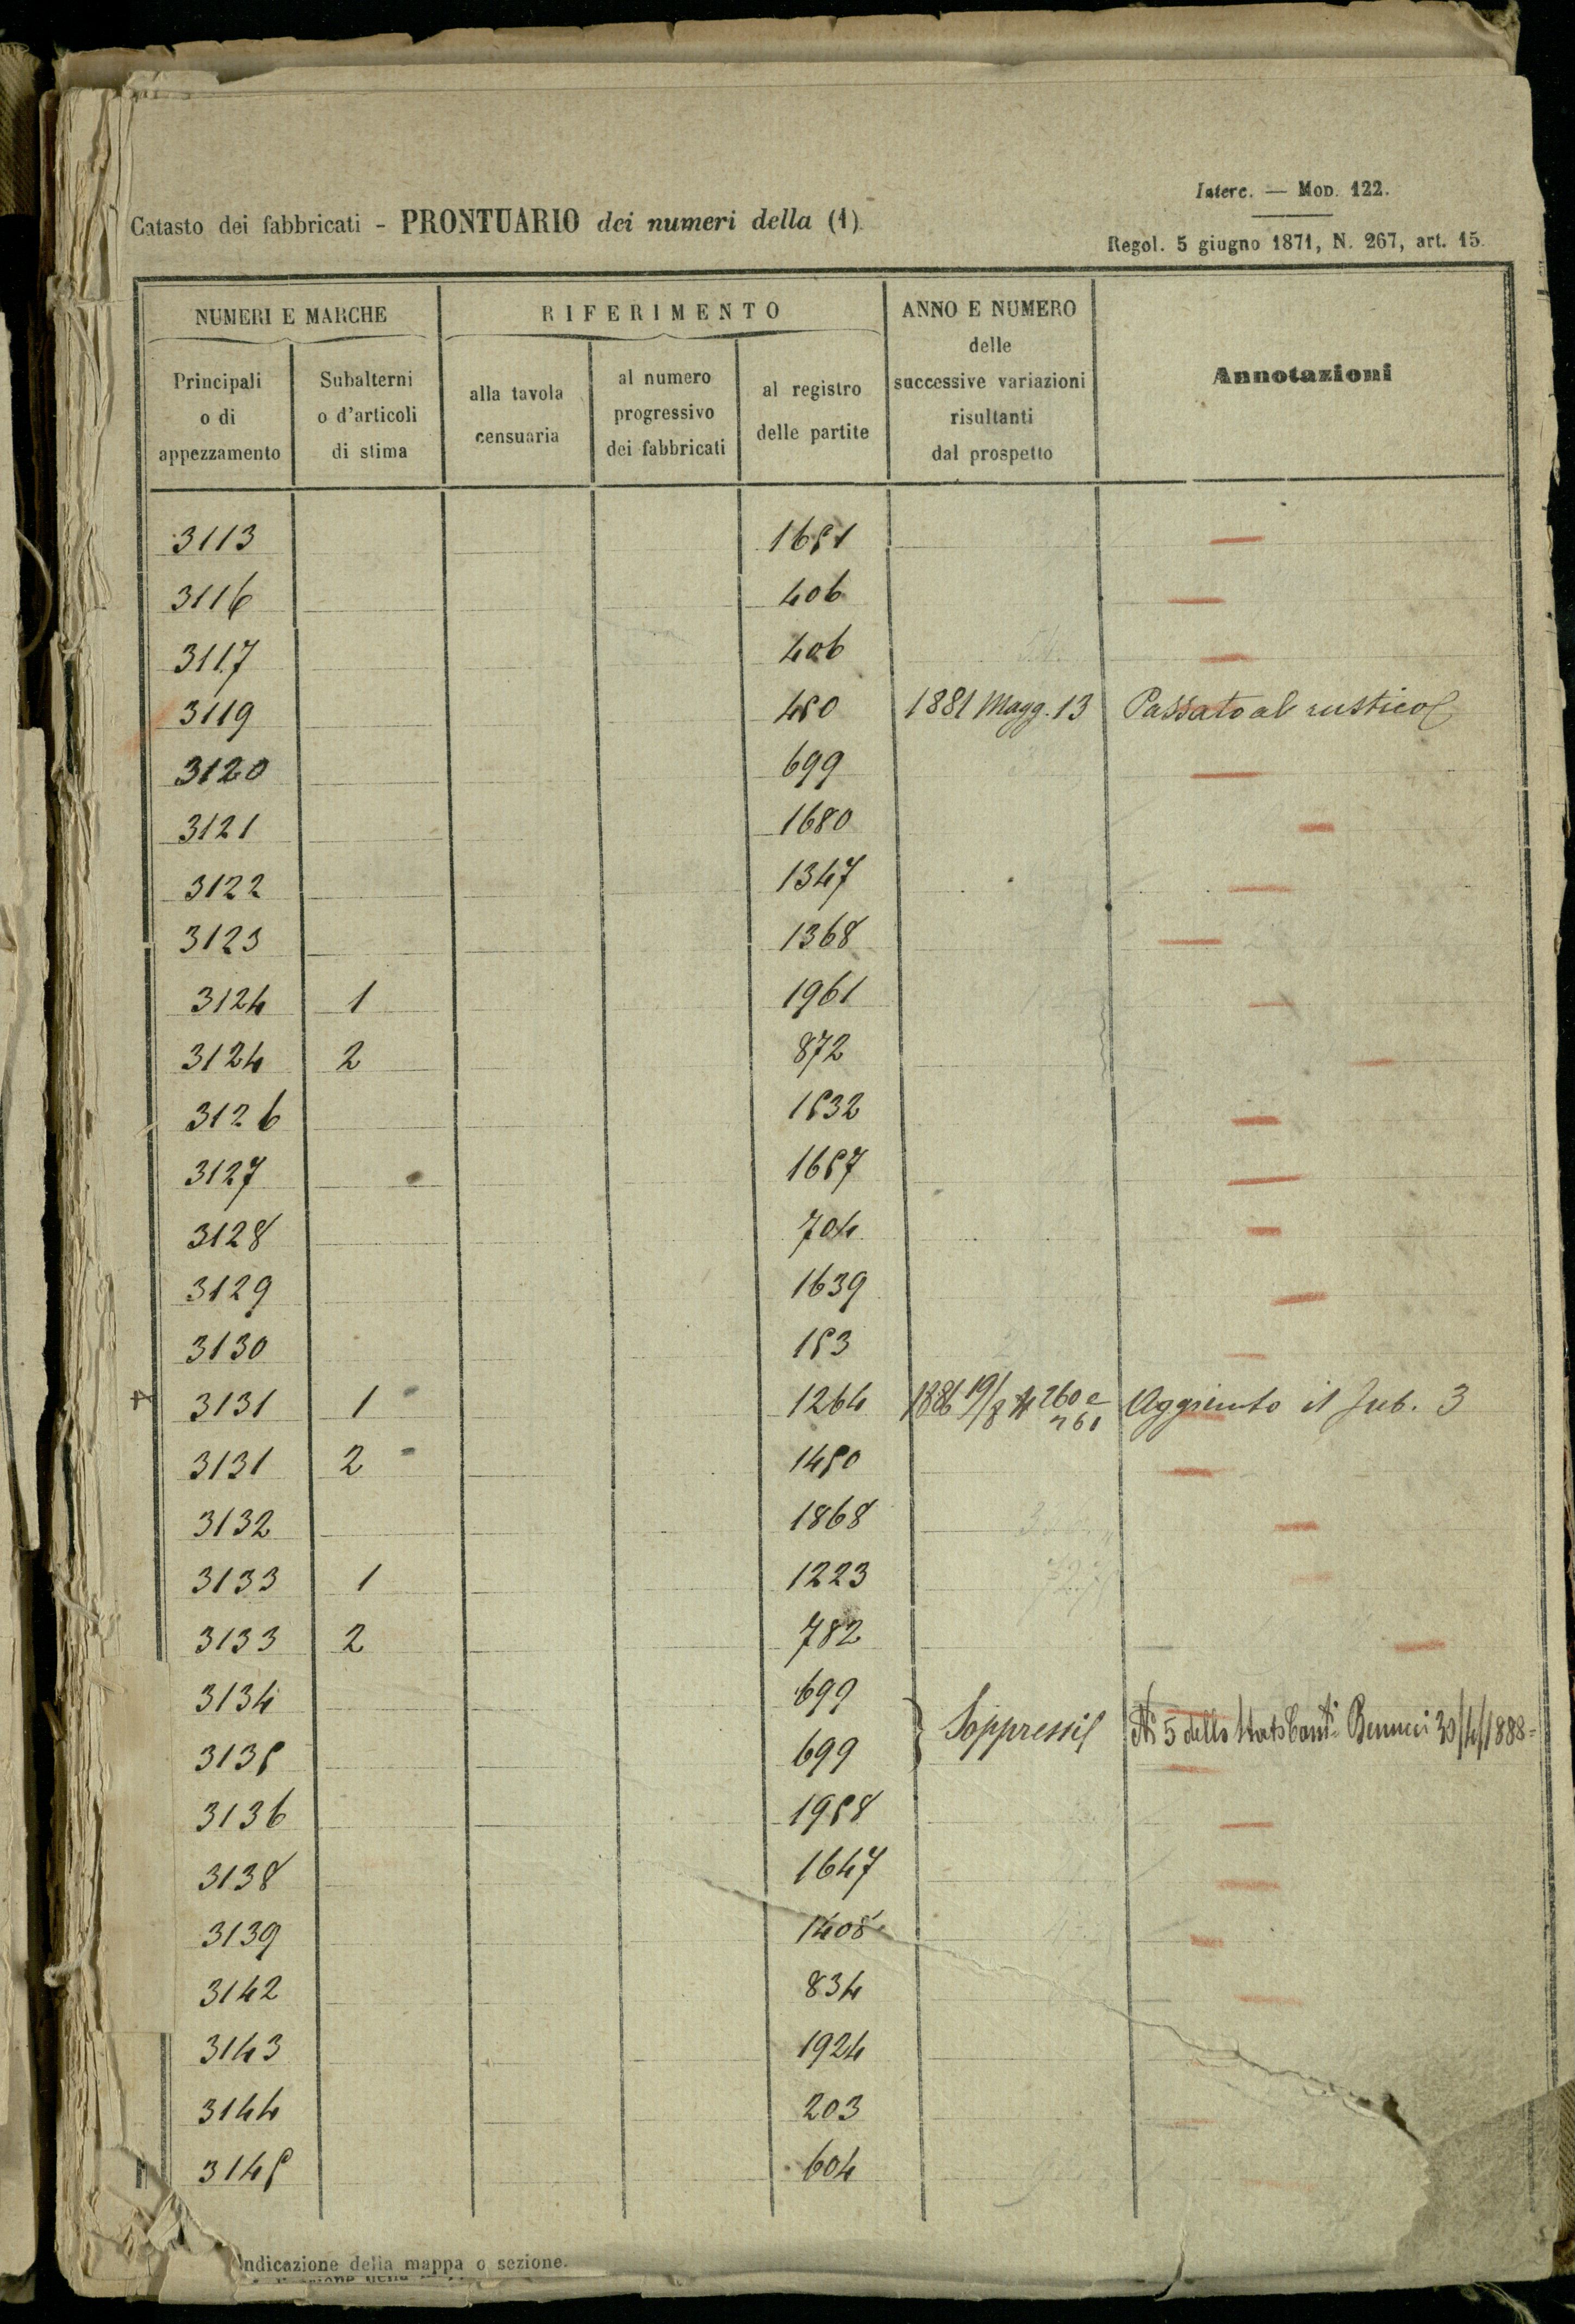 Interc. — Mod. 122.
Catasto dei fabbricati - PRONTUARIO dei numeri della (1)
Regol. 5 giugno 1871, N. 267, art. 15.
NUMERI E MARCHE
RIFERIMENTO
ANNO E NUMERO delle successive variazioni risultanti dal prospetto
Annotazioni
Principali o di appezzamento
Subalterni o d'articoli di stima
alla tavola censuaria
al numero progressivo dei fabbricati
al registro delle partite
3113 1651
3116 406
3117 406
3119 450 1881 Magg. 13 Passato al rustico
3120 699
3121 1680
3122 1347
3123 1368
3124 1 1961
3124 2 872
3126 1532
3127 1657
3128 704
3129 1639
3130 153
3131 1 1264 1886 19/8 N 260 e 261 Aggiunto il Sub. 3
3131 2 1450
3132 1868
3133 1 1223
3133 2 782
3134 699
Soppressi N 5 dello Stato Bennuci 30/4/1888
3135 699
3136 1958
3138 1647
3139 1408
3142 834
3143 1924
3144 203
3145 604
Indicazione della mappa o sezione.